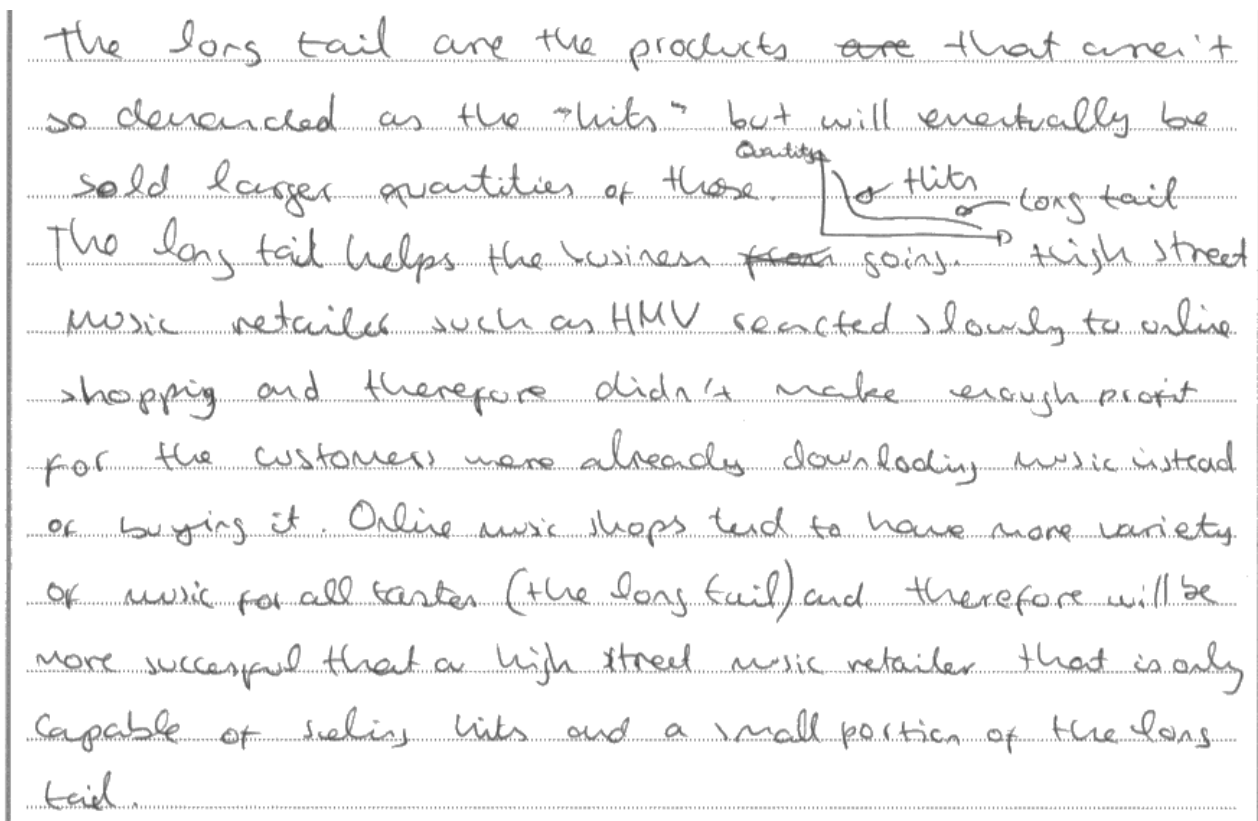 The long tail are the products are that aren't
so demanded as the "hits" but will eventually be
sold larger quantities of those.
Quantity
Hits
Long tail
The long tail helps the business from going. High street
music retailer such as HMV reacted slowly to online
shopping and therefore didn't make enough profit
for the customers were already downloding music instead
of buying it. Online music shops tend to have more variety
of music for all tastes (the long tail) and therefore will be
more successful that a high street music retailer that is only
capable of seling hits and a small portion of the long
tail.